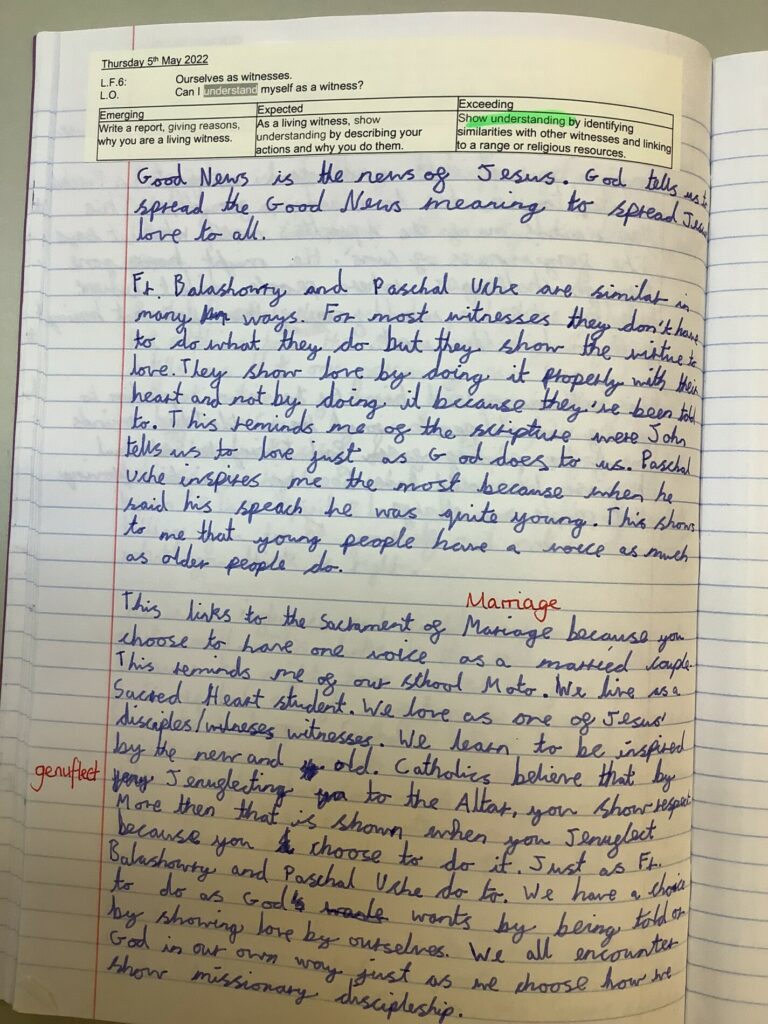 Thursday 5th May 2022
L.F.6: Ourselves as witnesses.
L.O. Can I understand myself as a witness?
Emerging
Write a report, giving reasons,
why you are a living witness.
Expected
As a living witness, show
understanding by describing your
actions and why you do them.
Exceeding
Show understanding by identifying
similarities with other witnesses and linking
to a range or religious resources.
Good News is the news of Jesus. God tells us to
spread the Good News meaning to spread Jesus
love to all.
Fr. Balashowry and Paschal Uche are similar in
many ways. For most witnesses they don't have
to do what they do but they show the virtue to
love. They show love by doing it properly with their
heart and not by doing it because they've been told
to. This reminds me of the scripture were John
tells us to love just as God does to us. Paschal
Uche inspires me the most because when he
said his speach he was quite young. This shows
to me that young people have a voice as much
as older people do.
Marriage
This links to the Sacrament of Mariage because you
choose to have one voice as a married couple.
This reminds me of our school Moto. We live as a
Sacred Heart student. We love as one of Jesus'
disciples/witneses witnesses. We learn to be inspired
by the new and old. Catholics believe that by
genuflect
Jenuglecting to the Altar, you show respect.
More then that is shown when you Jenuglect
because you choose to do it. Just as Fr.
Balashowry and Paschal Uche do to. We have a choice
to do as God wants by being told or
by showing love by ourselves. We all encounter
God in our own way just as we choose how we
show missionary discipleship.